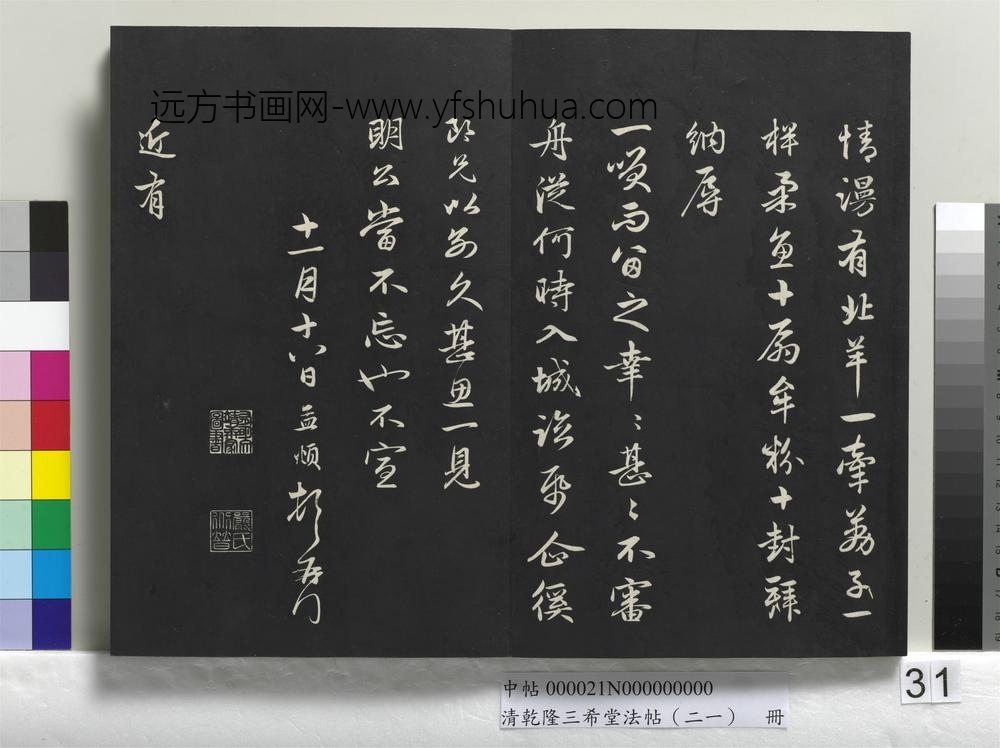 远方书画网-www.yfshuhua.com
情谩有北羊一牵荔子一
样柔鱼十扇牟粉十封拜
納辱
一哂而留之幸〻甚〻不審
舟從何時入城詣
郎兄以别久甚思一見
明公當不忘也不宣
十一月十八日孟頫頓首
近有
中帖 000021N000000000
清乾隆三希堂法帖（二一） 冊
31